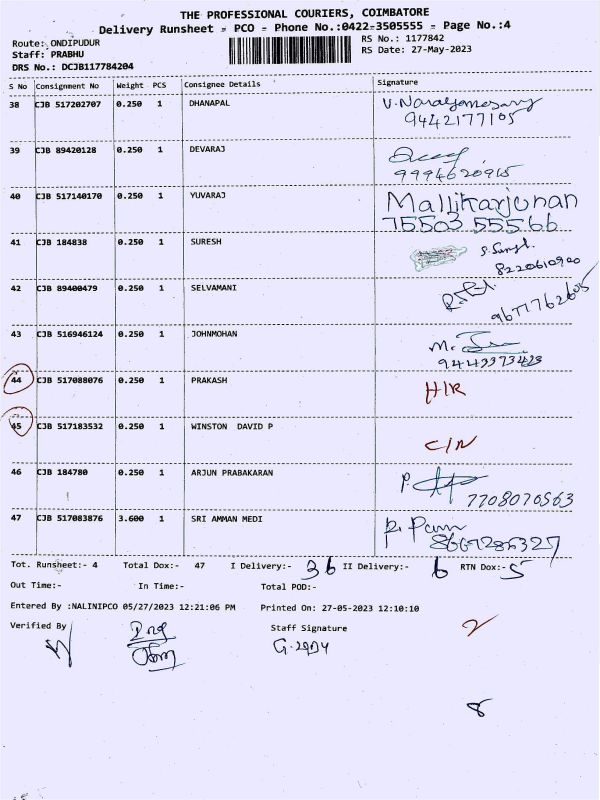 THE PROFESSIONAL COURIERS, COIMBATORE
Delivery Runsheet - PCO - Phone No.:0422-3505555 - Page No.:4
Route: ONDIPUDUR
RS No.: 1177842
Staff: PRABHU
RS Date: 27-May-2023
DRS No.: DCJB117784204
S No Consignment No Weight PCS Consignee Details Signature
38 CJB 517202707 0.250 1 DHANAPAL
9442177105
39 CJB 89420128 0.250 1 DEVARAJ
9994620915
40 CJB 517140170 0.250 1 YUVARAJ Mallikarjunan
75503 55566
41 CJB 184838 0.250 1 SURESH
8220610900
42 CJB 89400479 0.250 1 SELVAMANI
9677762605
43 CJB 516946124 0.250 1 JOHNMOHAN
9443373423
44 CJB 517088076 0.250 1 PRAKASH H/R
45 CJB 517183532 0.250 1 WINSTON DAVID P C/N
46 CJB 184780 0.250 1 ARJUN PRABAKARAN P.
7708070563
47 CJB 517083876 3.600 1 SRI AMMAN MEDI
8667286327
Tot. Runsheet:- 4 Total Dox:- 47 I Delivery:- 36 II Delivery:- 6 RTN Dox:- 5
Out Time:- In Time:- Total POD:-
Entered By :NALINIPCO 05/27/2023 12:21:06 PM Printed On: 27-05-2023 12:10:10
Verified By Staff Signature
2
8